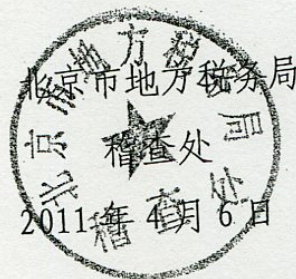 北京市地方税务局
稽查处
2011年4月6日
北京市地方税务局
稽查处